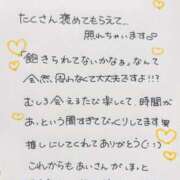 たくさん褒めてもらえて…
照れちゃいます
「飽きられてないかなぁ」なんて
全然思わなくて大丈夫ですよ!!?
むしろ会えるたび楽しくて、時間が
あっという間すぎてびっくりしてます
推しにしてくれてありがとう(˙˙)
これからもあいさんがほっと